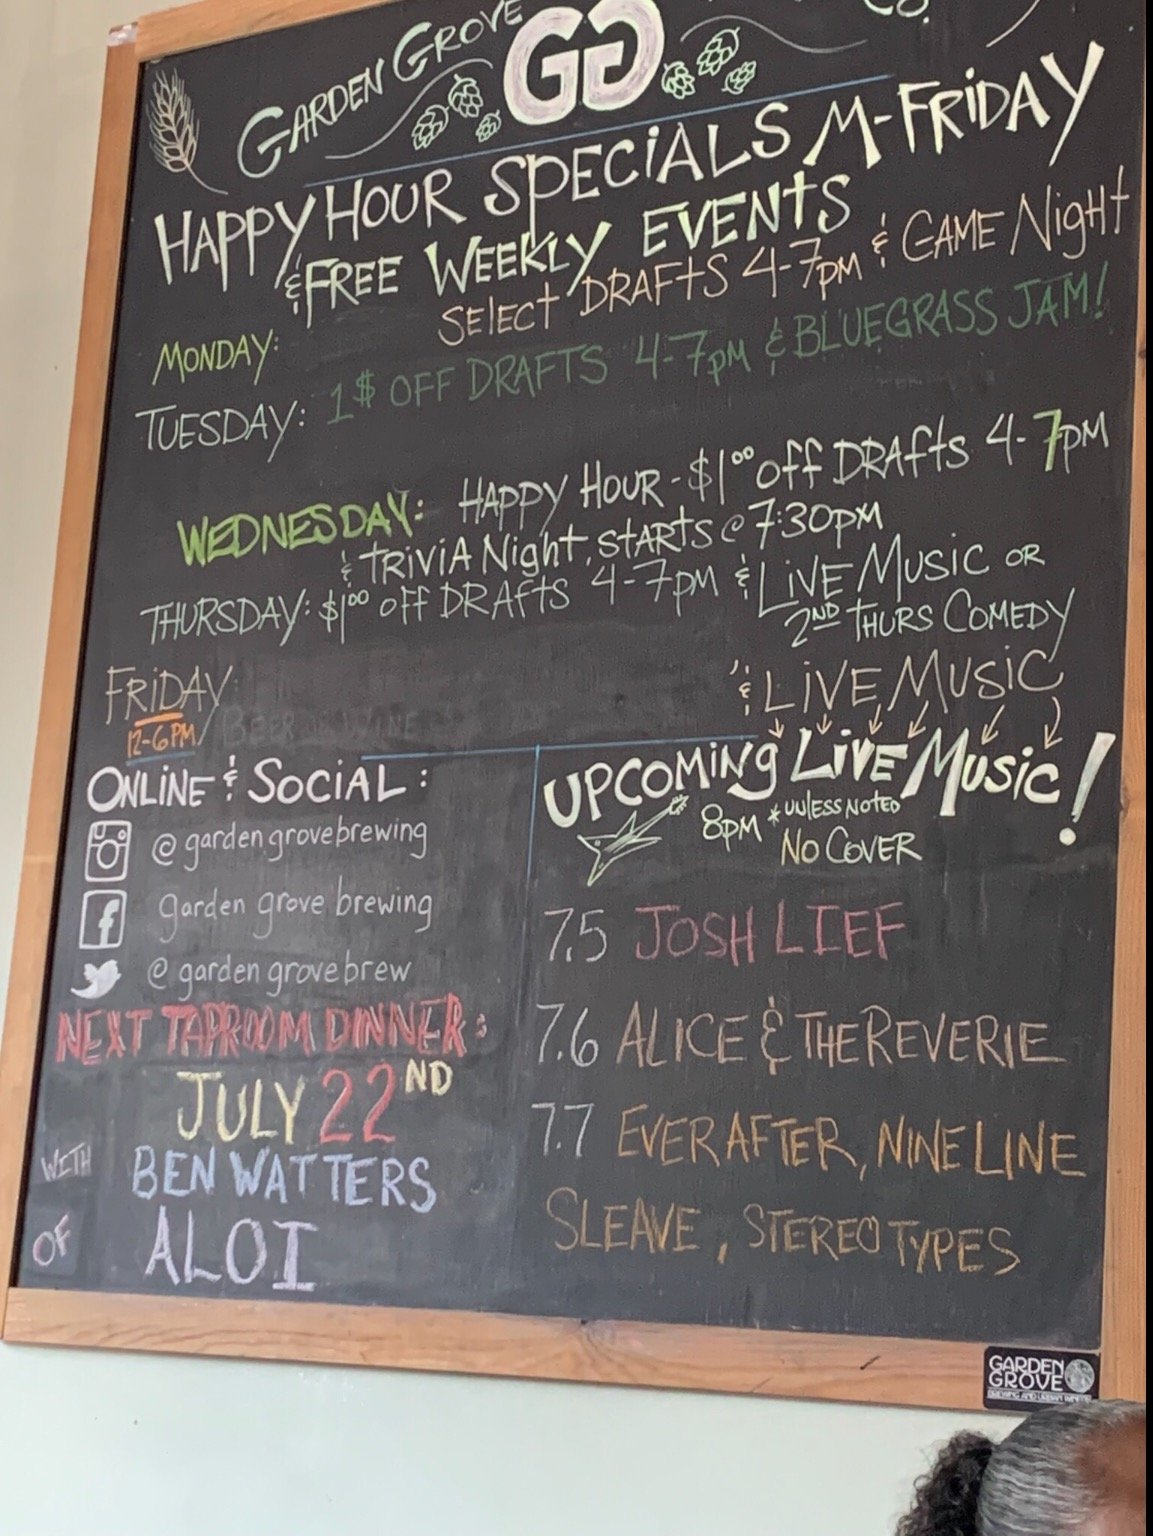 GARDEN GROVE
GG
CO.
HAPPY HOUR SPECIALS M-FRIDAY
& FREE WEEKLY EVENTS
MONDAY: SELECT DRAFTS 4-7PM & GAME NIGHT
TUESDAY: 1$ OFF DRAFTS 4-7PM & BLUEGRASS JAM!
WEDNESDAY: HAPPY HOUR - $1⁰⁰ OFF DRAFTS 4-7PM
& TRIVIA NIGHT, STARTS @ 7:30PM
THURSDAY: $1⁰⁰ OFF DRAFTS 4-7PM & LIVE MUSIC OR
2ND THURS COMEDY
FRIDAY: & LIVE MUSIC
12-6PM/ BEER WINE
ONLINE & SOCIAL:
@gardengrovebrewing
f garden grove brewing
@gardengrovebrew
NEXT TAPROOM DINNER:
JULY 22ND
WITH BEN WATTERS
OF ALOI
UPCOMING LIVE MUSIC!
8PM *UNLESS NOTED
NO COVER
7.5 JOSH LIEF
7.6 ALICE & THE REVERIE
7.7 EVERAFTER, NINE LINE
SLEAVE, STEREOTYPES
GARDEN
GROVE